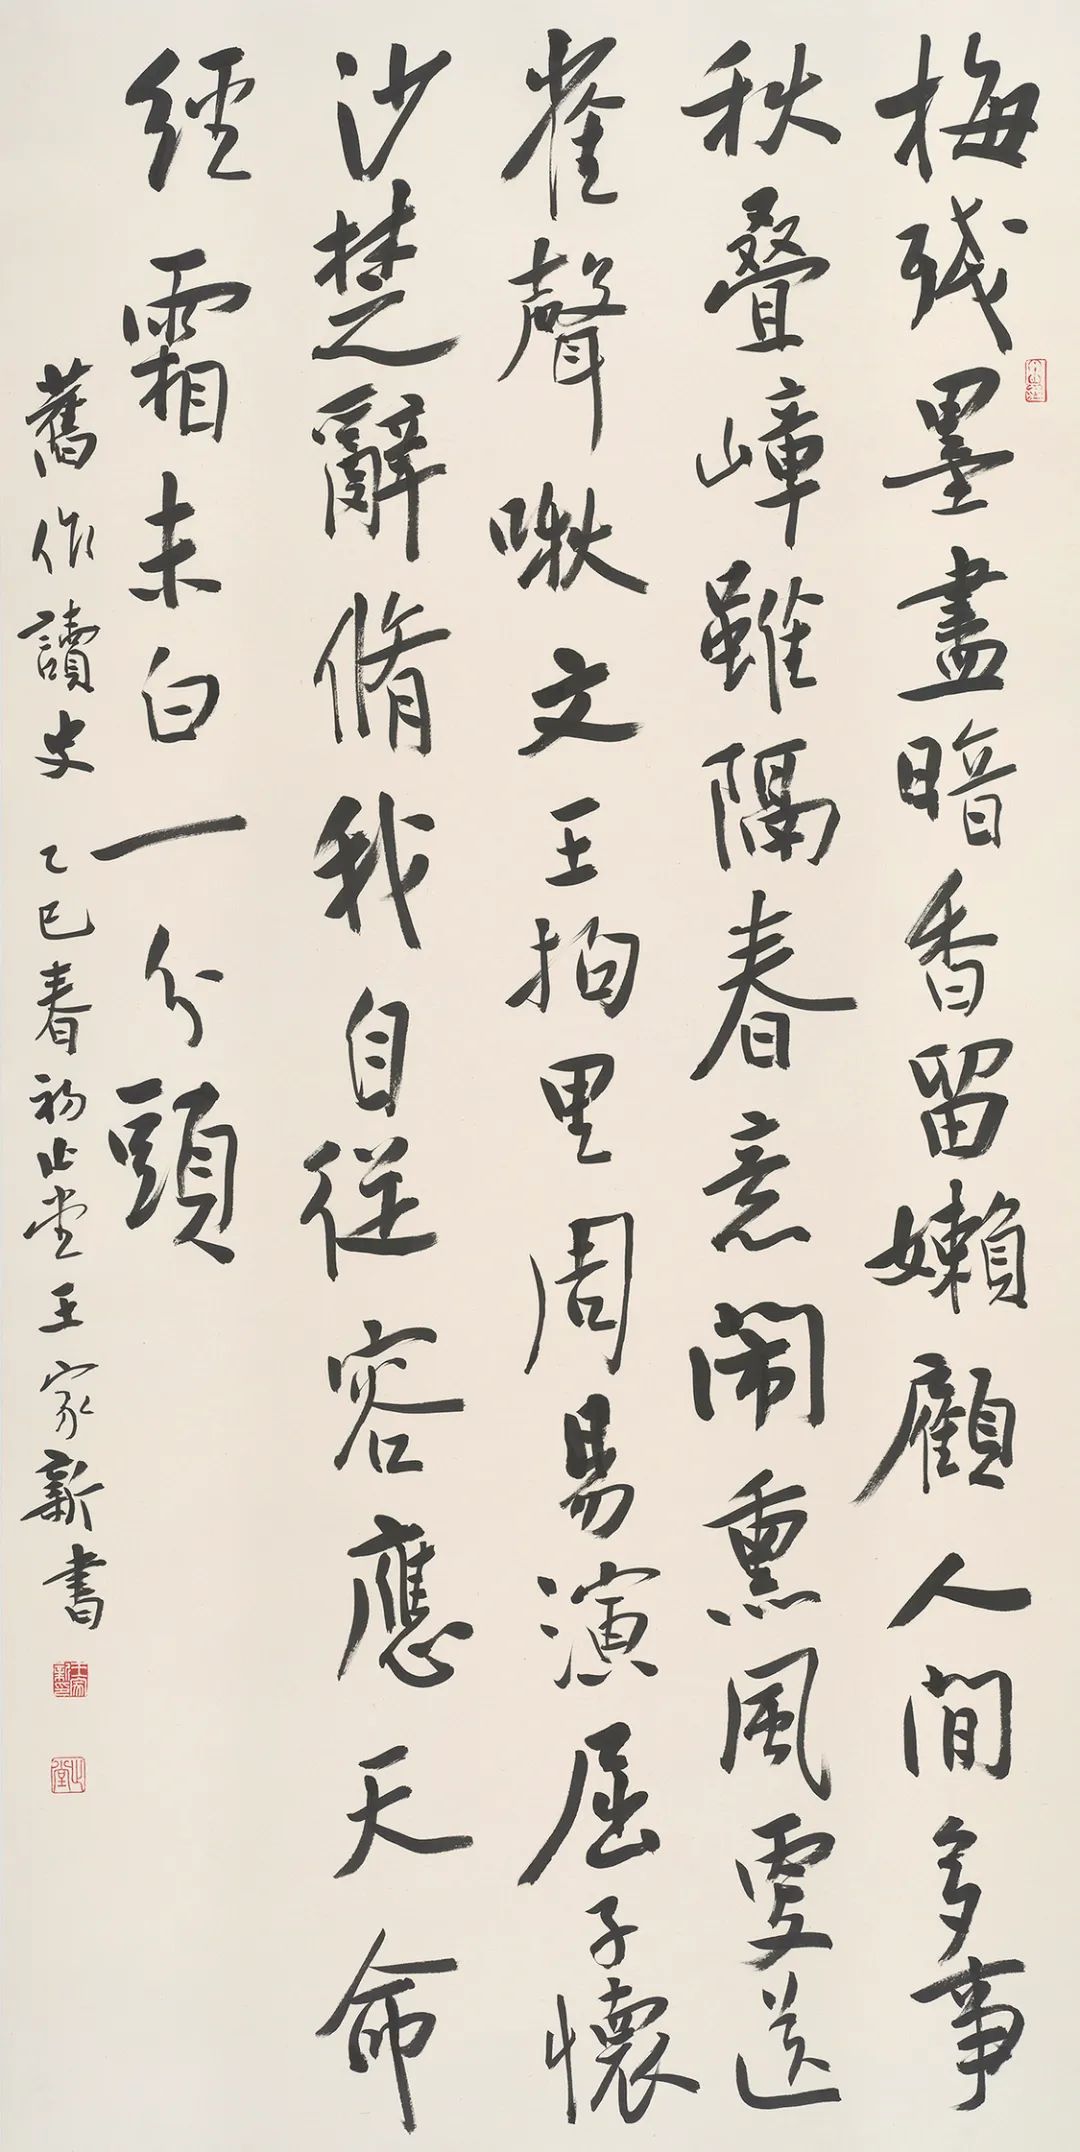 梅残墨盡暗香留嬾顧人間多事
秋叠嶂雖隔春意闹熏風送
雀聲啾文王拘里周易演屈子懷
沙楚辭脩我自從容應天命
經霜未白一分頭
舊作讀史乙巳春初止堂王家新書